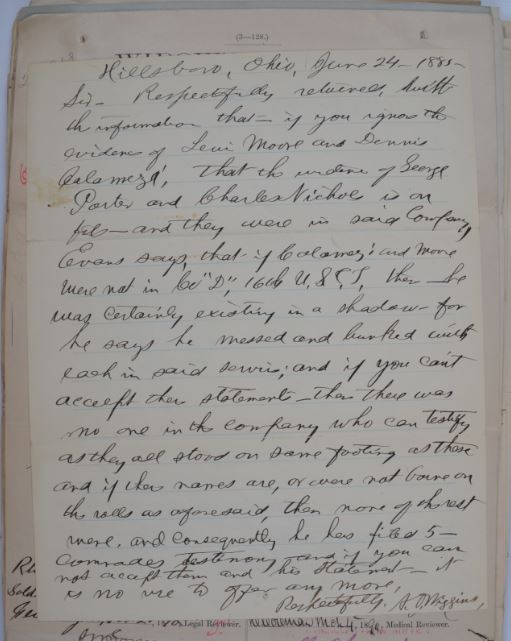 (3—128.)
Hillsboro, Ohio, June 24 – 1885 –
Sir – Respectfully returned, with
the information that – if you ignore the
evidence of Levi Moore and Dennis
Calameze', that the evidence of George
Porter and Charles Nichols is on
file – and they were in said Company,
Evans says, that if Calamez' and Moore
were not in Co "D", 16th U,S,C,T, then he
was certainly existing in a shadow – for
he says he messed and bunked with
each in said service; and if you can't
accept their statements – then there was
no one in the company who can testify
as they all stood on same footing as these
and if their names are, or were not borne on
the rolls as aforesaid, then none of the rest
were, and consequently he has filed 5 –
comrades testimony and if you can
not accept them and his statement – it
is no use to offer any more,
Respectfully. Wiggins,
Legal Reviewer. Medical Reviewer.